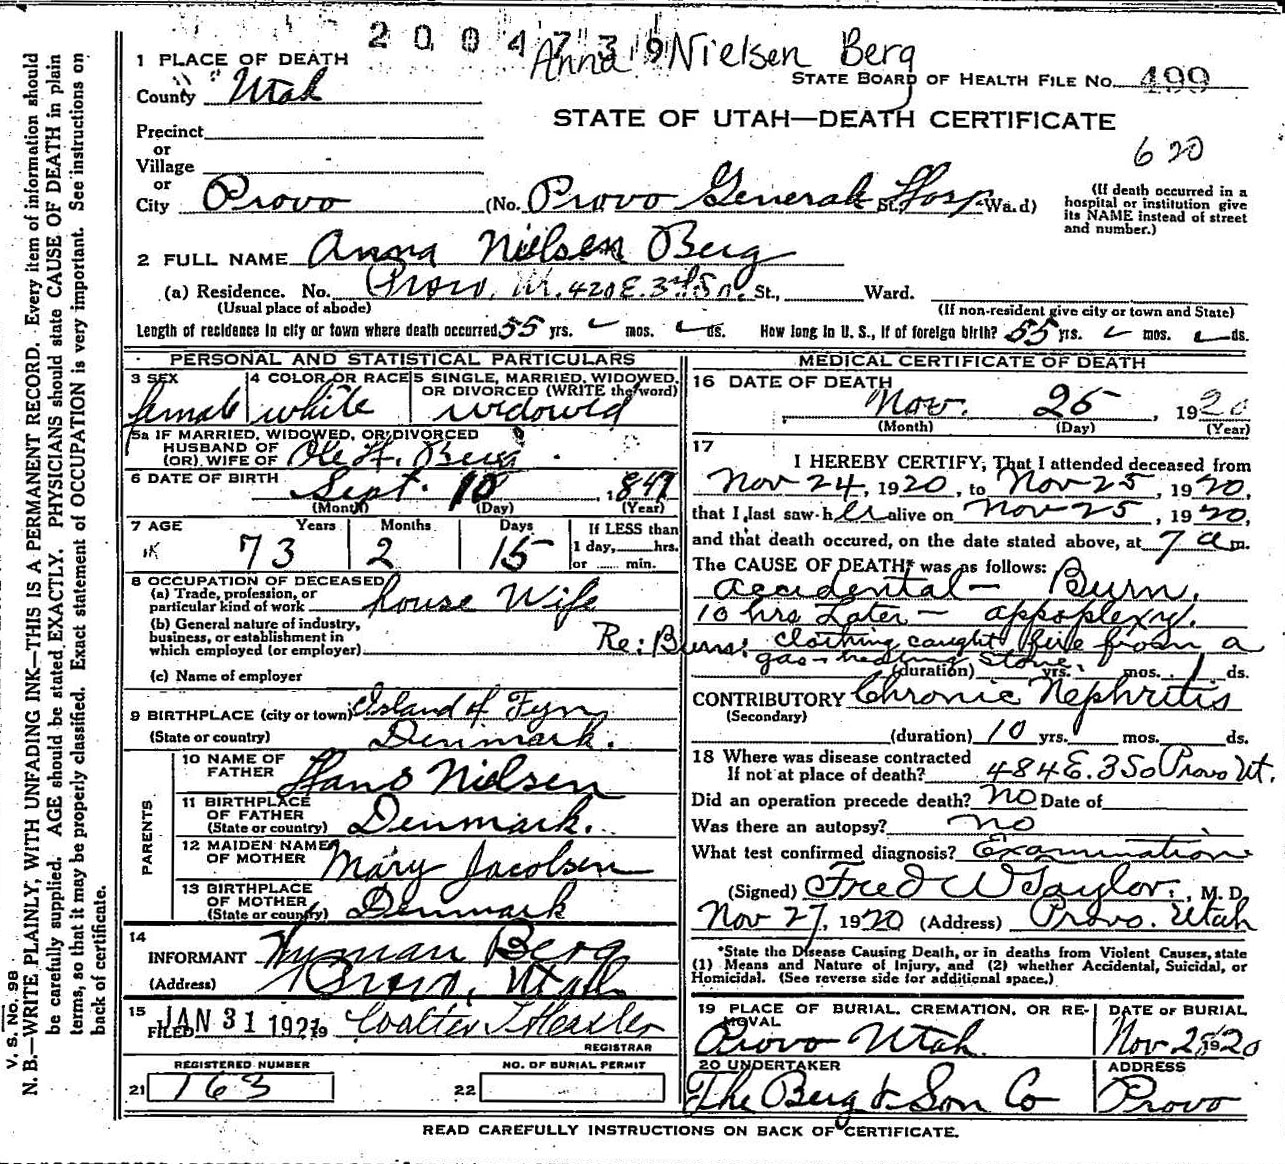 2004739
Anna Nielsen Berg
1 PLACE OF DEATH
STATE BOARD OF HEALTH FILE No. 499
County Utah
STATE OF UTAH—DEATH CERTIFICATE
620
Precinct
or
Village
or
City Provo (No. Provo General Hosp. St., Ward)
(If death occurred in a hospital or institution give its NAME instead of street and number.)
2 FULL NAME Anna Nielsen Berg
(a) Residence. No. Provo, 420 E. 3rd So. St., Ward.
(Usual place of abode) (If non-resident give city or town and State)
Length of residence in city or town where death occurred 55 yrs. mos. ds. How long in U. S., if of foreign birth? 55 yrs. mos. ds.
PERSONAL AND STATISTICAL PARTICULARS
3 SEX
female
4 COLOR OR RACE
white
5 SINGLE, MARRIED, WIDOWED, OR DIVORCED (WRITE the word)
widowed
5a IF MARRIED, WIDOWED, OR DIVORCED
HUSBAND OF
(OR) WIFE OF Ole H. Berg
6 DATE OF BIRTH Sept. 10, 1847
(Month) (Day) (Year)
7 AGE Years Months Days If LESS than
73 2 15 1 day, hrs.
or min.
8 OCCUPATION OF DECEASED
(a) Trade, profession, or
particular kind of work house Wife
(b) General nature of industry,
business, or establishment in
which employed (or employer)
(c) Name of employer
9 BIRTHPLACE (city or town) Island of Fyn
(State or country) Denmark.
PARENTS
10 NAME OF FATHER Hans Nielsen
11 BIRTHPLACE OF FATHER
(State or country) Denmark.
12 MAIDEN NAME OF MOTHER Mary Jacobsen
13 BIRTHPLACE OF MOTHER
(State or country) Denmark
14
INFORMANT Hyman Berg
(Address) Provo, Utah
15
FILED JAN 31 1921 19
REGISTRAR
REGISTERED NUMBER
21 163
NO. OF BURIAL PERMIT
22
MEDICAL CERTIFICATE OF DEATH
16 DATE OF DEATH
Nov. 25, 1920
(Month) (Day) (Year)
17
I HEREBY CERTIFY, That I attended deceased from
Nov 24, 1920, to Nov 25, 1920,
that I last saw h er alive on Nov 25, 1920,
and that death occured, on the date stated above, at 7 a m.
The CAUSE OF DEATH* was as follows:
accidental — Burn.
10 hrs Later — appoplexy.
Re: Burns: clothing caught fire from a
gas-heating stove.
(duration) yrs. mos. 1 ds.
CONTRIBUTORY Chronic Nephritis
(Secondary)
(duration) 10 yrs. mos. ds.
18 Where was disease contracted
If not at place of death? 484 E. 3 So Provo Ut.
Did an operation precede death? no Date of
Was there an autopsy? no
What test confirmed diagnosis? Examination
(Signed) Fred W Taylor, M. D.
Nov 27, 1920 (Address) Provo. Utah
*State the Disease Causing Death, or in deaths from Violent Causes, state
(1) Means and Nature of Injury, and (2) whether Accidental, Suicidal, or
Homicidal. (See reverse side for additional space.)
19 PLACE OF BURIAL, CREMATION, OR REMOVAL
Provo Utah.
DATE OF BURIAL
Nov 28 1920
20 UNDERTAKER
The Berg & Son Co
ADDRESS
Provo
READ CAREFULLY INSTRUCTIONS ON BACK OF CERTIFICATE.
V. S. No. 98
N. B.—WRITE PLAINLY, WITH UNFADING INK—THIS IS A PERMANENT RECORD. Every item of information should
be carefully supplied. AGE should be stated EXACTLY. PHYSICIANS should state CAUSE OF DEATH in plain
terms, so that it may be properly classified. Exact statement of OCCUPATION is very important. See instructions on
back of certificate.